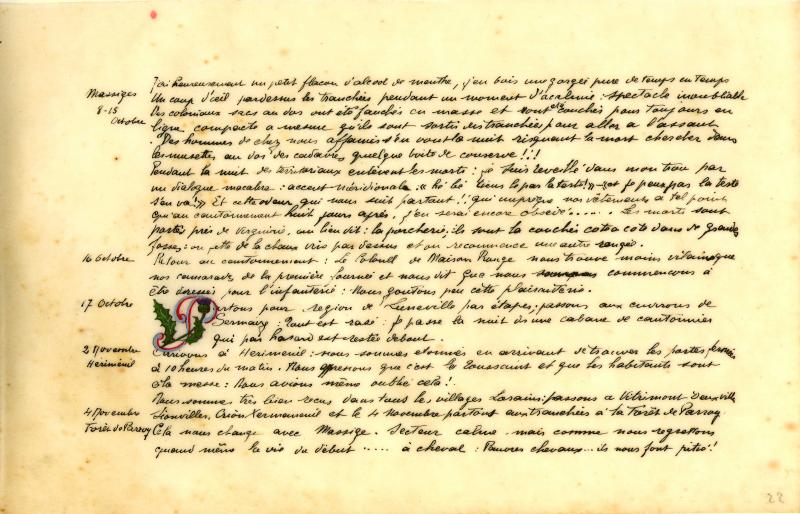 J'ai heureusement un petit flacon d'alcool de menthe, j'en bois une gorgée pure de temps en temps
Massiges
Un coup d'œil pardessus les tranchées pendant un moment d'acalmie : spectacle inoubliable
8-15
Des coloniaux sacs au dos ont été fauchés en masse et sont couchés pour toujours en
Octobre
ligne compacte a mesure qu'ils sont sortis des tranchées pour aller a l'assaut
. Des hommes de chez nous affamés s'en vont la nuit risquant la mort chercher dans
les musettes au dos des cadavres quelque boite de conserve !!!
Pendant la nuit des territoriaux enlèvent les morts : je suis reveillé dans mon trou par
un dialogue macabre : accent méridional : « hé bé tiens le par la testo !» - « et je peux pas la teste
s'en va !» Et cette odeur qui nous suit partout !! qui imprègne nos vêtements a tel point
qu'au cantonnement huit jours après j'en serai encore obsédé..... Les morts sont
portés près de Virginie, au lieu dit : la porcherie, ils sont la couchés cote a cote dans de grandes
fosses : on jette de la chaux vive par dessus et on recommence une autre rangée.
16 Octobre
Retour au cantonnement : Le Colonel de Maison Rouge nous trouve moins vilains que
nos camarades de la première fournée et nous dit que nous commençons à
être dressés pour l'infanterie : Nous goutons peu cette plaisanterie.
17 Octobre
Partons pour region de Luneville par étapes, passons aux environs de
Sermaize : Tout est rasé : je passe la nuit dans une cabane de cantonnier
qui par hasard est restée debout.
2 Novembre
Arrivons à Hérimenil : nous sommes étonnés en arrivant de trouver les portes fermées
Hériménil
à 10 heures du matin. Nous apprenons que c'est la Toussaint et que les habitants sont
à la messe : Nous avions même oublié cela !
Nous sommes très bien recus dans tous les villages Lorrains : passons a Vitrimont Deuxville
4 Novembre
Sionviller. Crion et le 4 Novembre partons aux tranchées à la Forêt de Parroy
Forêt de Parroy
Cela nous change avec Massige. Secteur calme mais comme nous regrettons
quand même la vie du début ..... à cheval : Pauvres chevaux... ils nous font pitié !
22